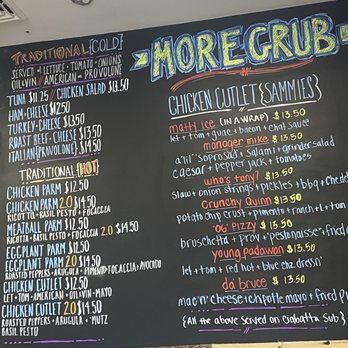 TRADITIONAL {COLD}
SERVED W/ LETTUCE · TOMATO · ONIONS
OIL & VIN // AMERICAN OR PROVOLONE
TUNA $11.25 // CHICKEN SALAD $13.50
HAM + CHEESE $12.50
TURKEY + CHEESE $13.50
ROAST BEEF + CHEESE $14.50
ITALIAN {PROVOLONE} $14.50
TRADITIONAL {HOT}
CHICKEN PARM $12.50
CHICKEN PARM 2.0 $14.50
RICOTTA + BASIL PESTO + FOCACCIA
MEATBALL PARM $12.50
RICOTTA + BASIL PESTO + FOCACCIA 2.0 $14.50
EGGPLANT PARM $12.50
EGGPLANT PARM 2.0 $14.50
ROASTED PEPPERS + ARUGULA + FOCACCIA + AVOCADO
CHICKEN CUTLET $12.50
LET + TOM + AMERICAN + OIL + VIN + MAYO
CHICKEN CUTLET 2.0 $14.50
ROASTED PEPPERS + ARUGULA + MUTZ
BASIL PESTO
MORE GRUB
CHICKEN CUTLET {SAMMIES}
matty ice (IN A WRAP) $13.50
let + tom + guac + bacon + chal sauce
manager mike $13.50
a'lil' soprosad + salami + grinder salad
caesar + pepper jack + tomatoes
who's tony? $13.50
slaw + onion strings + pickles + bbq + chedd
Crunchy Quinn $13.50
potato chip crust + pimento + ranch + L + tom
'OG' Pizzy $13.50
broschetta + prov + 'pestonaise' + fried
young padawan $13.50
let + tom + red hot + blue chz dressin'
da' bruce $13.50
mac n' cheese + chipotle mayo + fried pi
{All the above served on ciabatta sub}